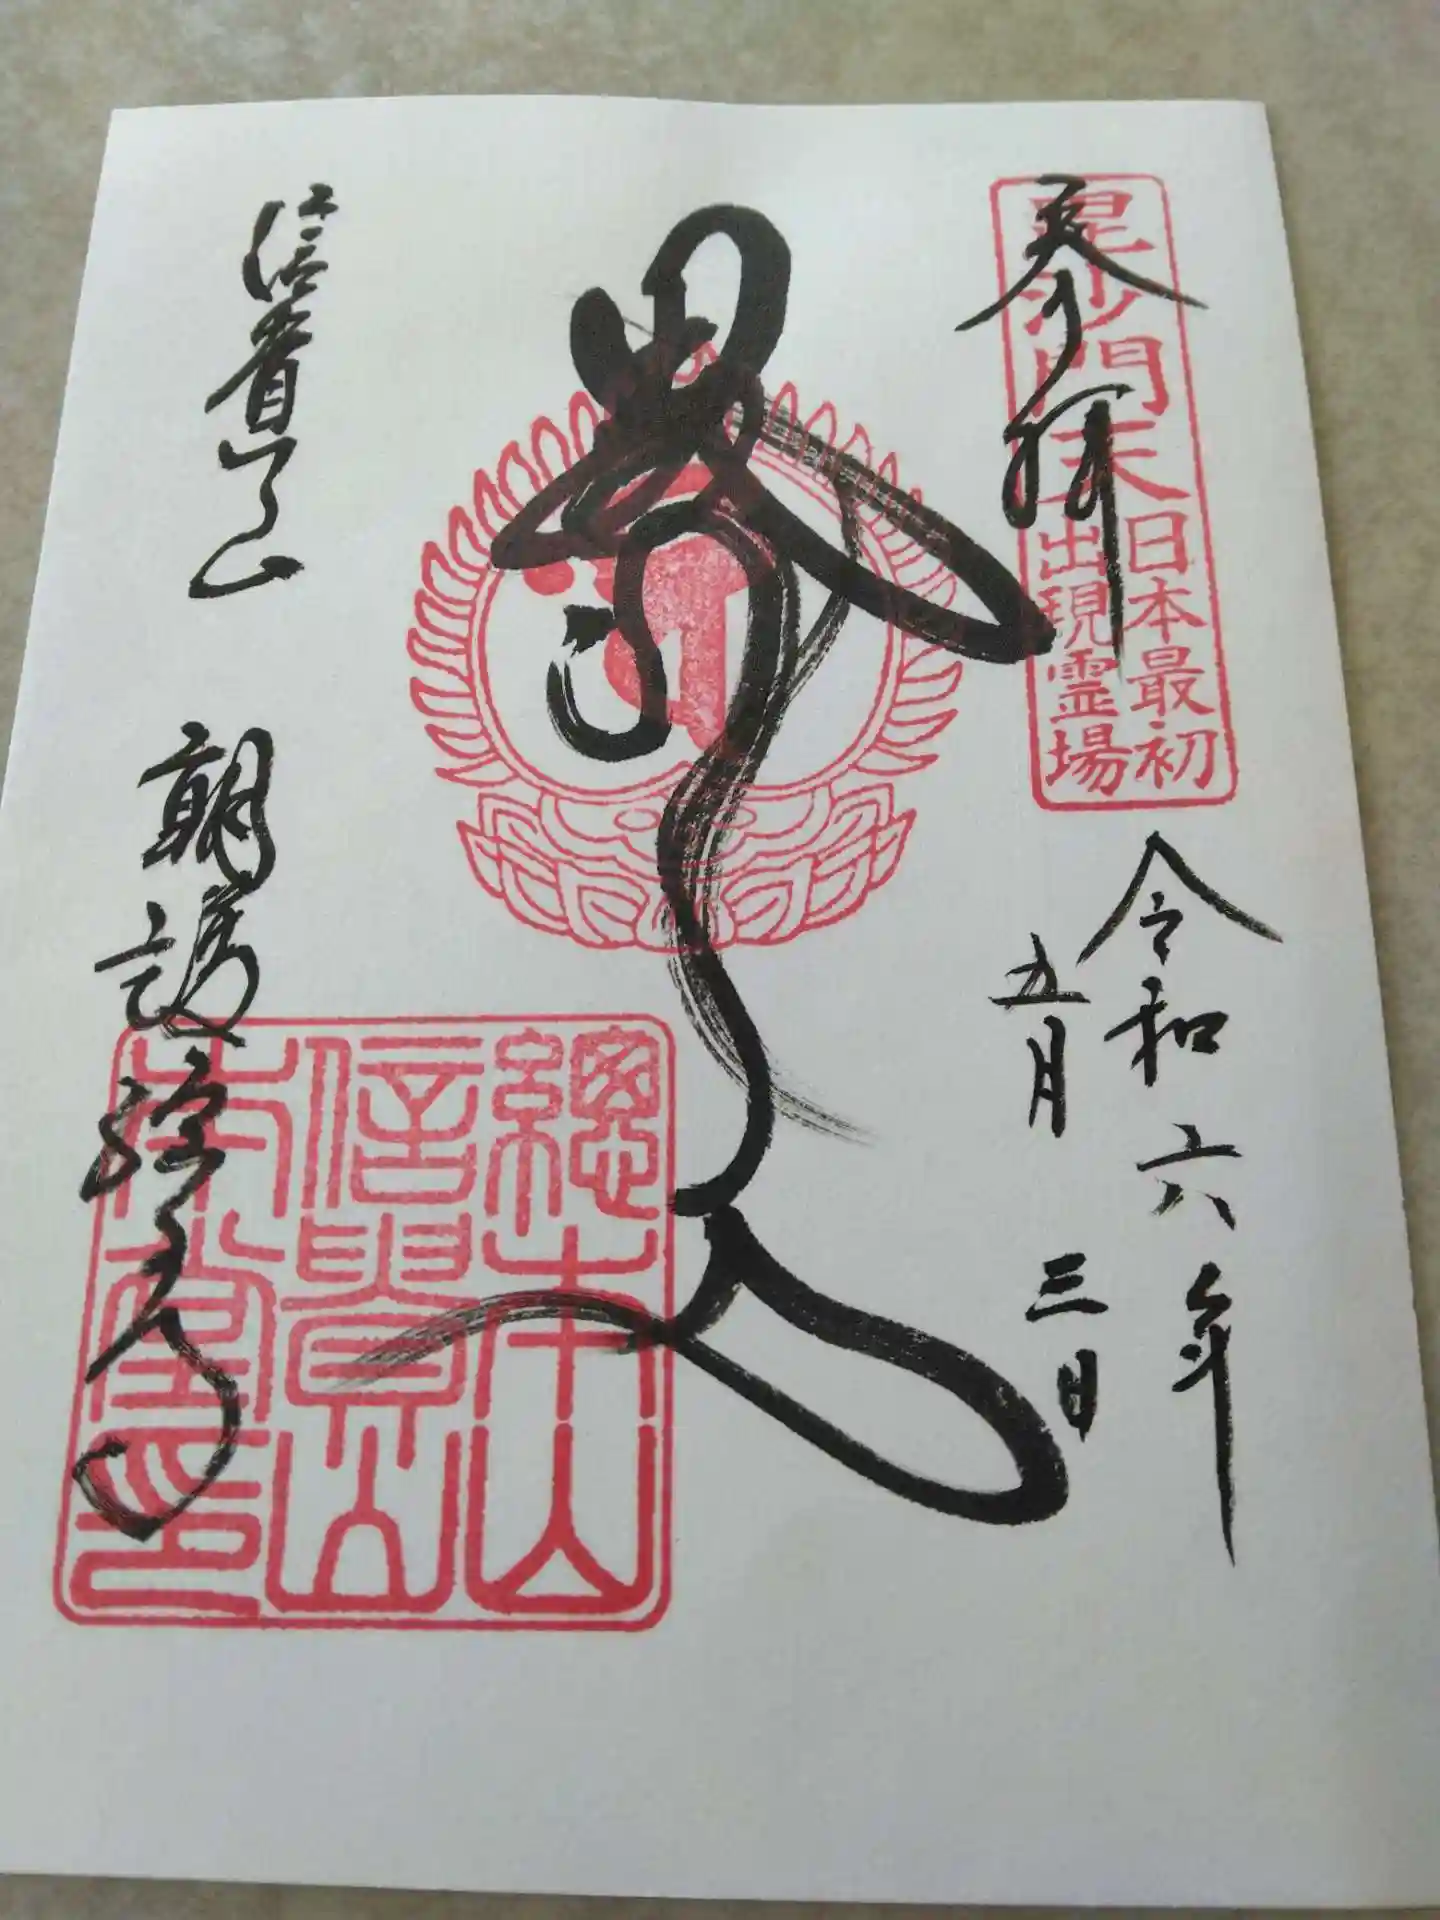 毘沙門天
日本最初
出現霊場
奉拝
令和六年
五月三日
信貴山 朝護孫子寺
總本山
信貴山
本堂印